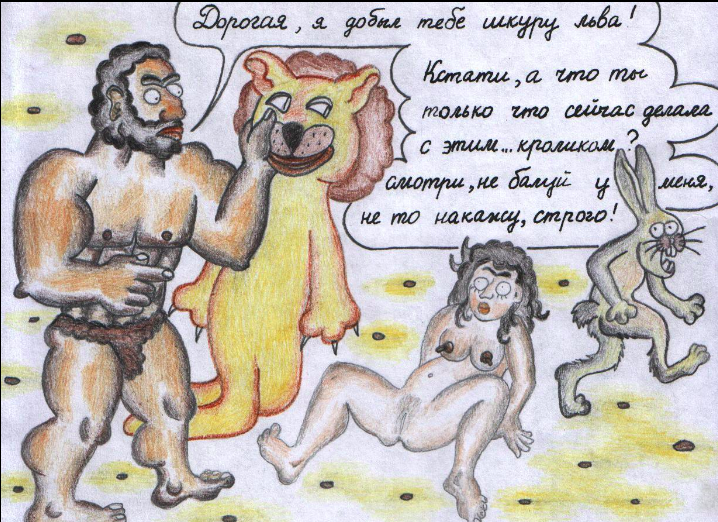 Дорогая, я добыл тебе шкуру льва!
Кстати, а что ты
только что сейчас делала
с этим... кроликом?
смотри, не балуй у меня,
не то накажу, строго!